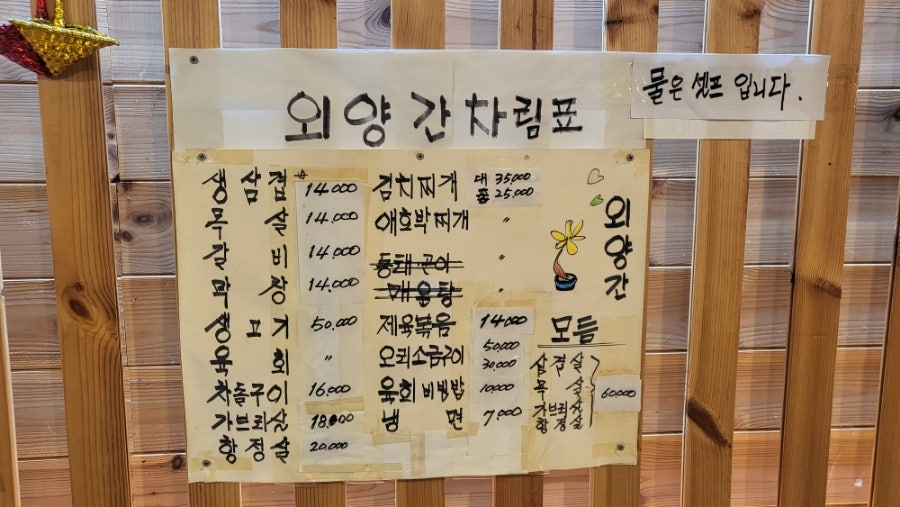 외양간차림표
물은 셀프 입니다.
생삼겹 14,000
목살 14,000
갈비 14,000
막창 14,000
생고기 50,000
육회 〃
차돌구이 16,000
가브리살 18,000
항정살 20,000
김치찌개 대 35,000
중 25,000
애호박찌개 〃
동태곤이 〃
매운탕 〃
제육볶음 14,000
오리소금구이 50,000
30,000
육회비빔밥 10,000
냉면 7,000
외양간
모듬
삼겹살
목살
가브리살
항정살
60,000